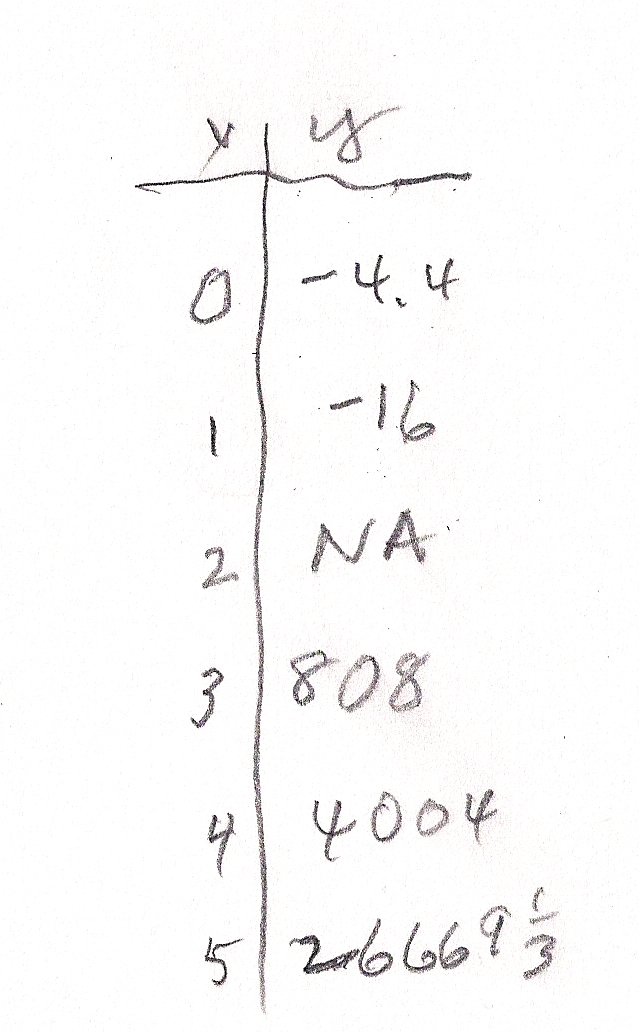 x y
0 -4.4
1 -16
2 NA
3 808
4 4004
5 26669 1/3